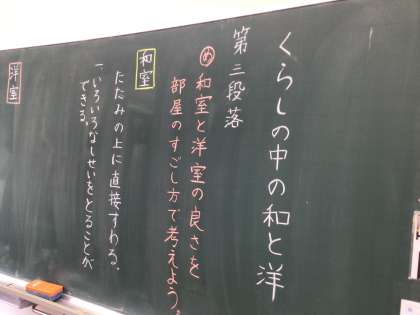 くらしの中の和と洋
第三段落
め 和室と洋室の良さを
部屋のすごし方で考えよう。
和室
たたみの上に直接すわる。
・いろいろなしせいをとることが
できる。
洋室